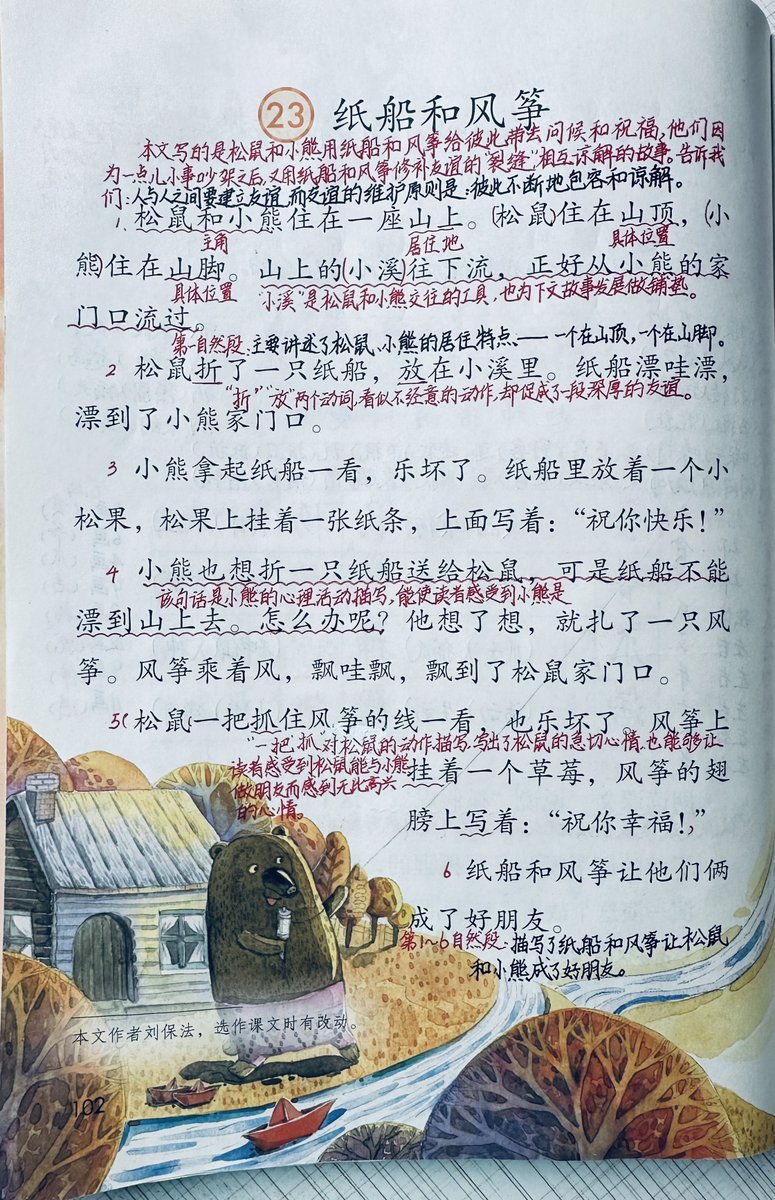 23 纸船和风筝
本文写的是松鼠和小熊用纸船和风筝给彼此带去问候和祝福,他们因
为一点儿小事吵架之后,又用纸船和风筝修补友谊的“裂缝”相互谅解的故事。告诉我
们:人与人之间要建立友谊,而友谊的维护原则是:彼此不断地包容和谅解。
1. 松鼠和小熊住在一座山上。(松鼠)住在山顶,(小
主角 居住地 具体位置
熊)住在山脚。山上的(小溪)往下流,正好从小熊的家
具体位置 “小溪”是松鼠和小熊交往的工具,也为下文故事发展做铺垫。
门口流过。
第一自然段:主要讲述了松鼠、小熊的居住特点、——一个在山顶,一个在山脚。
2 松鼠折了一只纸船,放在小溪里。纸船漂哇漂,
“折”“放”两个动词,看似不经意的动作,却促成了一段深厚的友谊。
漂到了小熊家门口。
3 小熊拿起纸船一看,乐坏了。纸船里放着一个小
松果,松果上挂着一张纸条,上面写着:“祝你快乐!”
4 小熊也想折一只纸船送给松鼠,可是纸船不能
该句话是小熊的心理活动描写,能使读者感受到小熊是
漂到山上去。怎么办呢?他想了想,就扎了一只风
筝。风筝乘着风,飘哇飘,飘到了松鼠家门口。
5( 松鼠一把抓住风筝的线一看,也乐坏了。风筝上
“一把抓”对松鼠的动作描写,写出了松鼠的急切心情,也能够让
读者感受到松鼠能与小熊
挂着一个草莓,风筝的翅
做朋友而感到无比高兴
的心情。
膀上写着:“祝你幸福!”
6 纸船和风筝让他们俩
成了好朋友。
第1~6自然段:描写了纸船和风筝让松鼠
和小熊成了好朋友。
本文作者刘保法,选作课文时有改动。
102